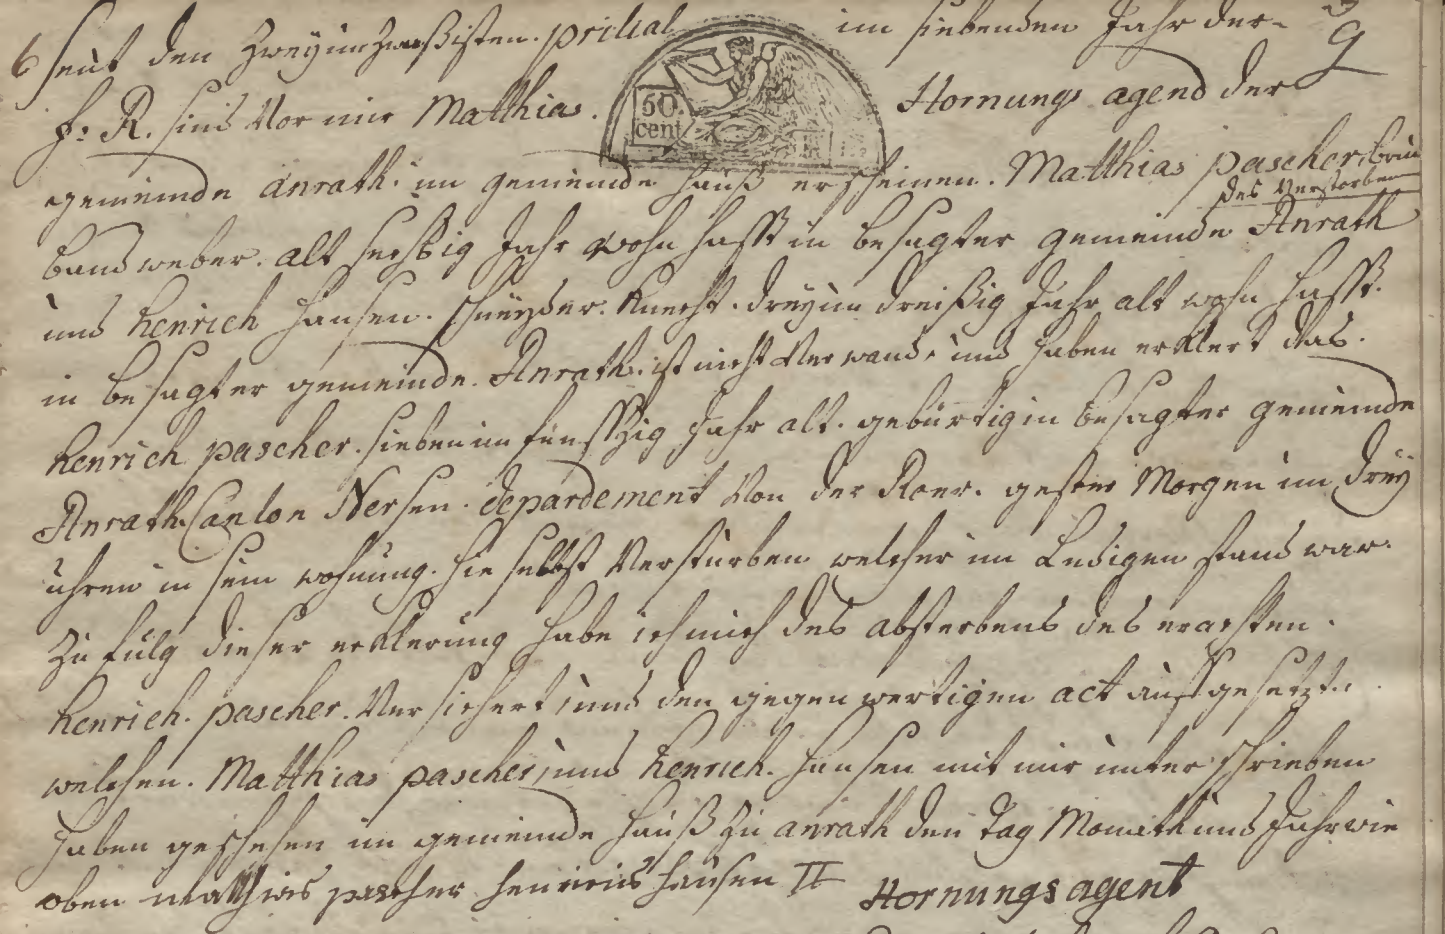 6 heut den zweyunzwanßisten. prilial im siebenden Jahr der- 9
f: R. sind Vor mir Mathias. Hornungs agend der
50 cent
gemeinde anrath. im gemeinde hauß erscheinen. Matthias pascher,
des Verstorben
band weber. alt sechßig Jahr wohn hafft in besagter gemeinde Anrath
und henrich hansen. schneyder. knecht. dreyun dreißig Jahr alt wohn hafft.
in besagter gemeinde. Anrath. ist nicht Verwand. und haben erklert das.
henrich pascher. siebenun funffzig Jahr alt. gebürtig in besagter gemeinde
Anrath. Canton Nersen. depardement Von der Roer. gester Morgen um drey
uhren in sein wohnung. hie selbst Versturben welcher im Ledigen stand war.
Zu fulg dieser erklerung habe ich mich des absterbens des
henrich. pascher. Versichert, und den gegenwertigen act auf gesetzt.
welchen. Matthias pascher, und henrich. hansen mit mir unterschrieben
haben geschehen im gemeinde hauß zu anrath den tag Monath und Jahr wie
oben mathias pascher henricus hansen Hornungs agent